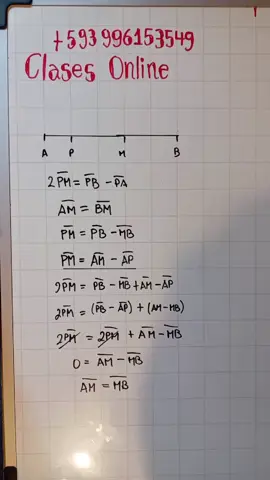 +593 996153549
Clases Online
A P M B
2PM̅ = P̅B̅ - P̅A̅
A̅M̅ = B̅M̅
P̅M̅ = P̅B̅ - M̅B̅
P̅M̅ = A̅M̅ - A̅P̅
2P̅M̅ = P̅B̅ - M̅B̅ + A̅M̅ - A̅P̅
2P̅M̅ = (P̅B̅ - A̅P̅) + (AM - MB)
2P̅M̅ = 2P̅M̅ + A̅M̅ - M̅B̅
0 = A̅M̅ - M̅B̅
A̅M̅ = M̅B̅